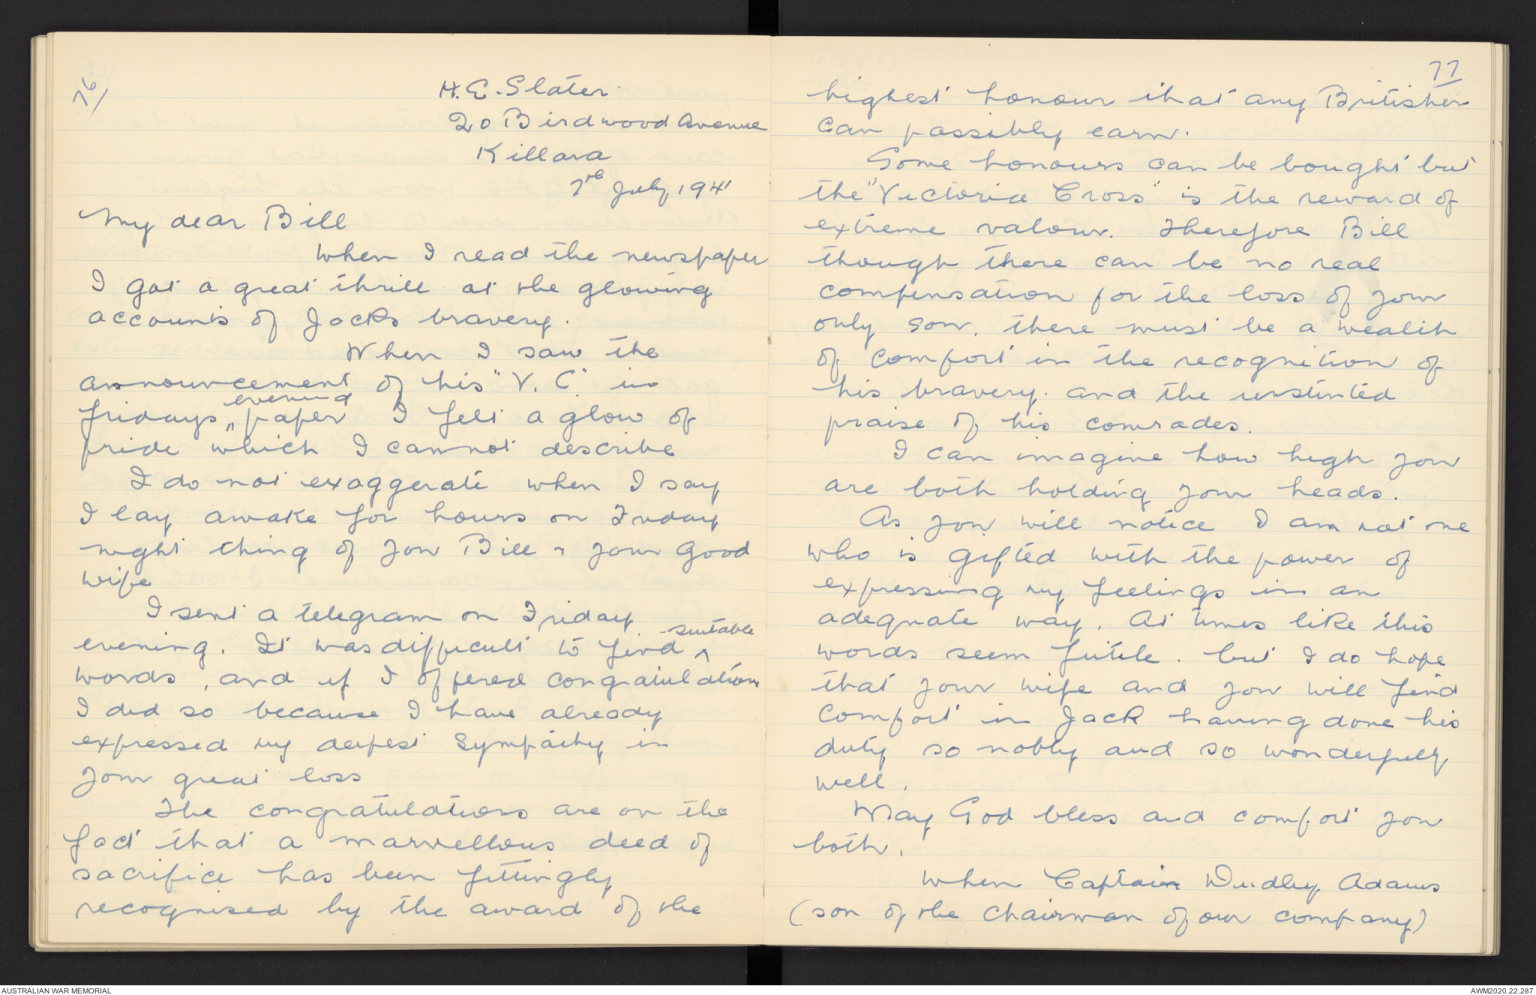 76
H. E. Slater
20 Birdwood Avenue
Killara
7th July, 1941
My dear Bill
When I read the newspaper
I got a great thrill at the glowing
accounts of Jacks bravery.
When I saw the
announcement of his "V. C" in
fridays evening paper I felt a glow of
pride which I cannot describe
I do not exaggerate when I say
I lay awake for hours on Friday
night thing of you Bill & your good
wife
I sent a telegram on Friday
evening. It was difficult to find suitable
words, and if I offered congratulations
I did so because I have already
expressed my deepest sympathy in
your great loss
The congratulations are on the
fact that a marvellous deed of
sacrifice has been fittingly
recognised by the award of the
77
highest honour that any Britisher
can possibly earn.
Some honours can be bought but
the "Victoria Cross" is the reward of
extreme valour. Therefore Bill
though there can be no real
compensation for the loss of your
only son, there must be a wealth
of comfort in the recognition of
his bravery and the unstinted
praise of his comrades.
I can imagine how high you
are both holding your heads.
As you will notice I am not one
who is gifted with the power of
expressing my feelings in an
adequate way. At times like this
words seem futile. but I do hope
that your wife and you will find
comfort in Jack having done his
duty so nobly and so wonderfully
well.
May God bless and comfort you
both.
When Captain Dudley Adams
(son of the Chairman of our company)
AUSTRALIAN WAR MEMORIAL
AWM2020.22.287